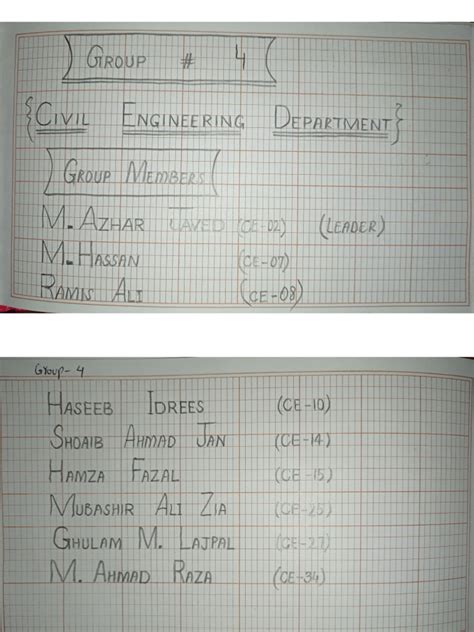 GROUP # 4
{CIVIL ENGINEERING DEPARTMENT}
GROUP MEMBERS
M. AZHAR JAVED (CE-02) (LEADER)
M. HASSAN (CE-07)
RAMIS ALI (CE-08)
Group- 4
HASEEB IDREES (CE-10)
SHOAIB AHMAD JAN (CE-14)
HAMZA FAZAL (CE-15)
MUBASHIR ALI ZIA (CE-25)
GHULAM M. LAJPAL (CE-27)
M. AHMAD RAZA (CE-34)